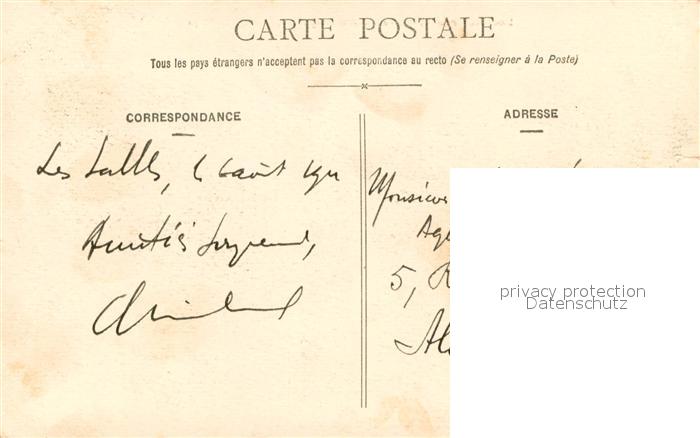 CARTE POSTALE
Tous les pays étrangers n'acceptent pas la correspondance au recto (Se renseigner à la Poste)
CORRESPONDANCE
Les Salles, le 6 août
Amitiés
ADRESSE
Monsieur
Age
5, R
Al
privacy protection
Datenschutz